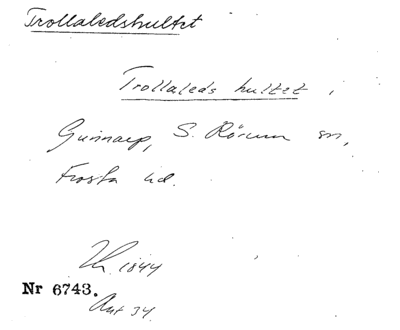 Trollaledshultet
Trollaleds hultet,
Gunnarp, S. Rörum sn,
Frosta hd.
1844
Nr 6743.
Ant 34